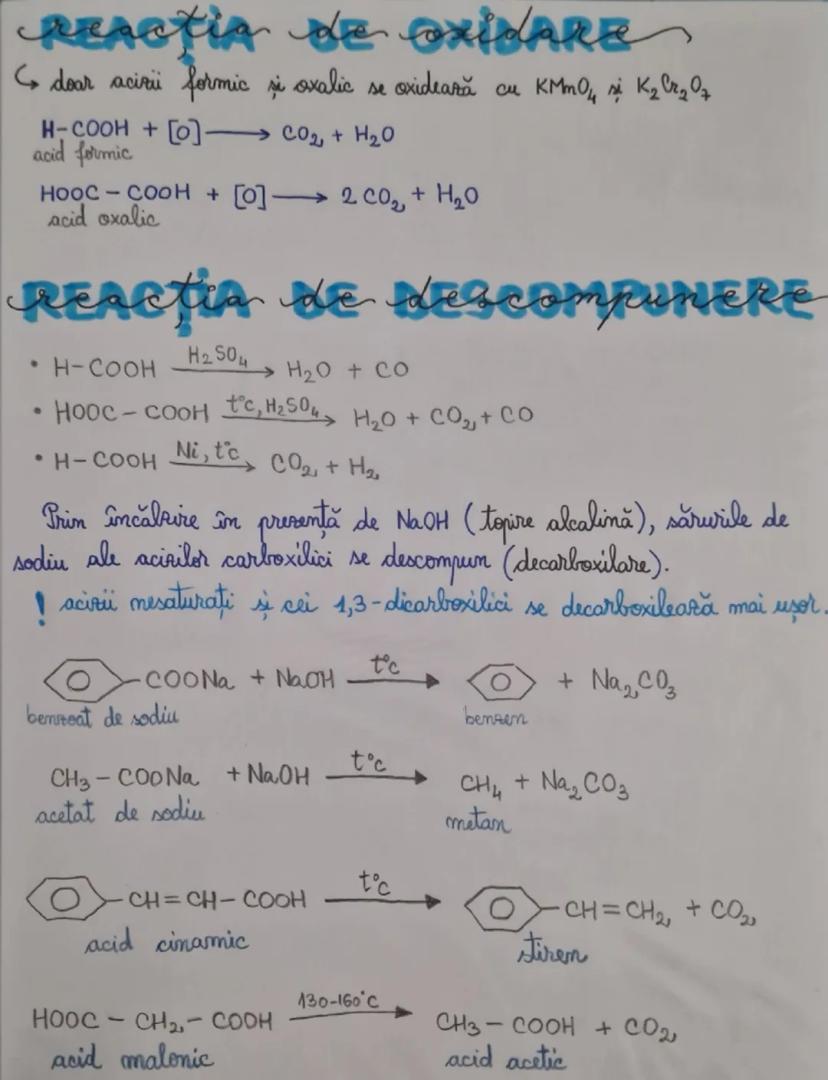 reacția de oxidare
↳ doar acizii formic și oxalic se oxidează cu KMnO₄ și K₂Cr₂O₇
H-COOH + [O] → CO₂ + H₂O
acid formic
HOOC - COOH + [O] → 2 CO₂ + H₂O
acid oxalic
reacția de descompunere
• H-COOH H₂SO₄→ H₂O + CO
• HOOC - COOH t°C, H₂SO₄→ H₂O + CO₂ + CO
• H-COOH Ni, t°C→ CO₂ + H₂
Prin încălzire în prezență de NaOH (topire alcalină), sărurile de
sodiu ale acizilor carboxilici se descompun (decarboxilare).
! acizii nesaturați și cei 1,3-dicarboxilici se decarboxilează mai ușor.
-COONa + NaOH t°C→ + Na₂CO₃
benzoat de sodiu benzen
CH₃ - COONa + NaOH t°C→ CH₄ + Na₂CO₃
acetat de sodiu metan
-CH=CH-COOH t°C→ -CH=CH₂ + CO₂
acid cinamic stiren
HOOC - CH₂ - COOH 130-160°C→ CH₃ - COOH + CO₂
acid malonic acid acetic